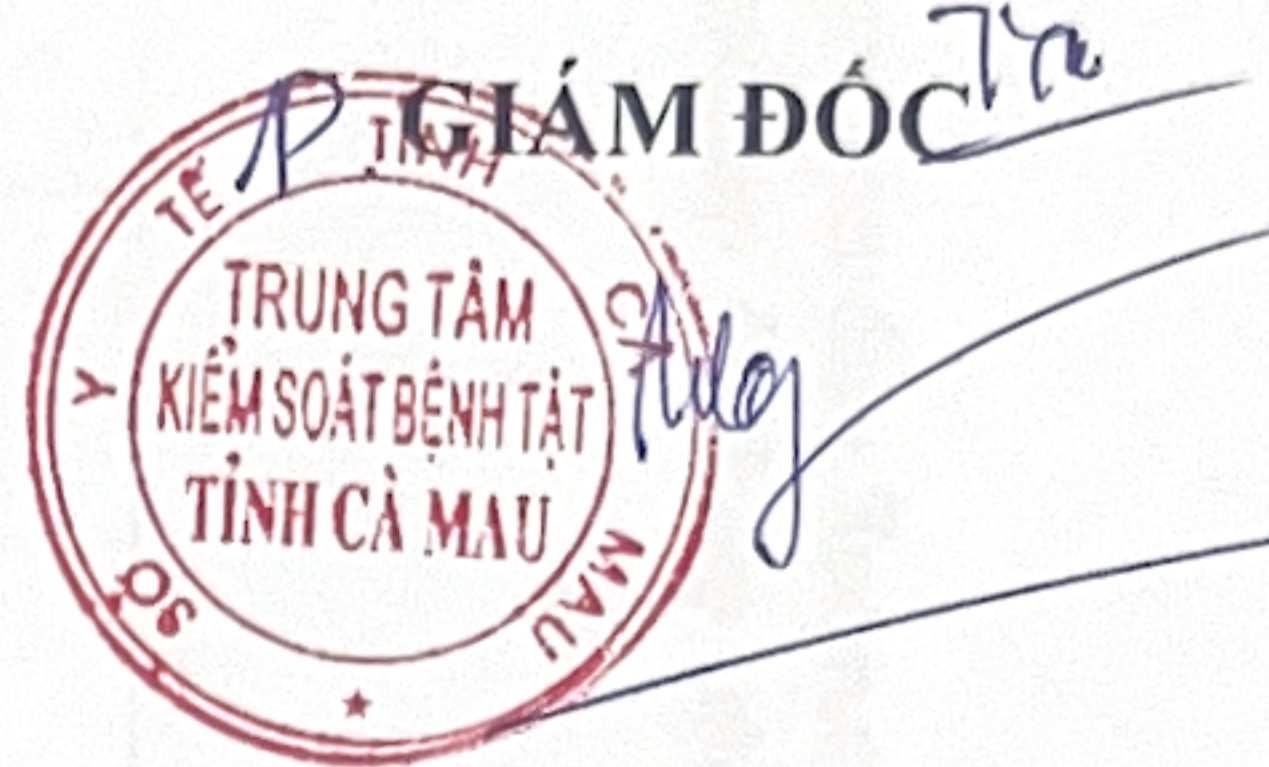 GIÁM ĐỐC
SỞ Y TẾ TỈNH CÀ MAU
TRUNG TÂM
KIỂM SOÁT BỆNH TẬT
TỈNH CÀ MAU